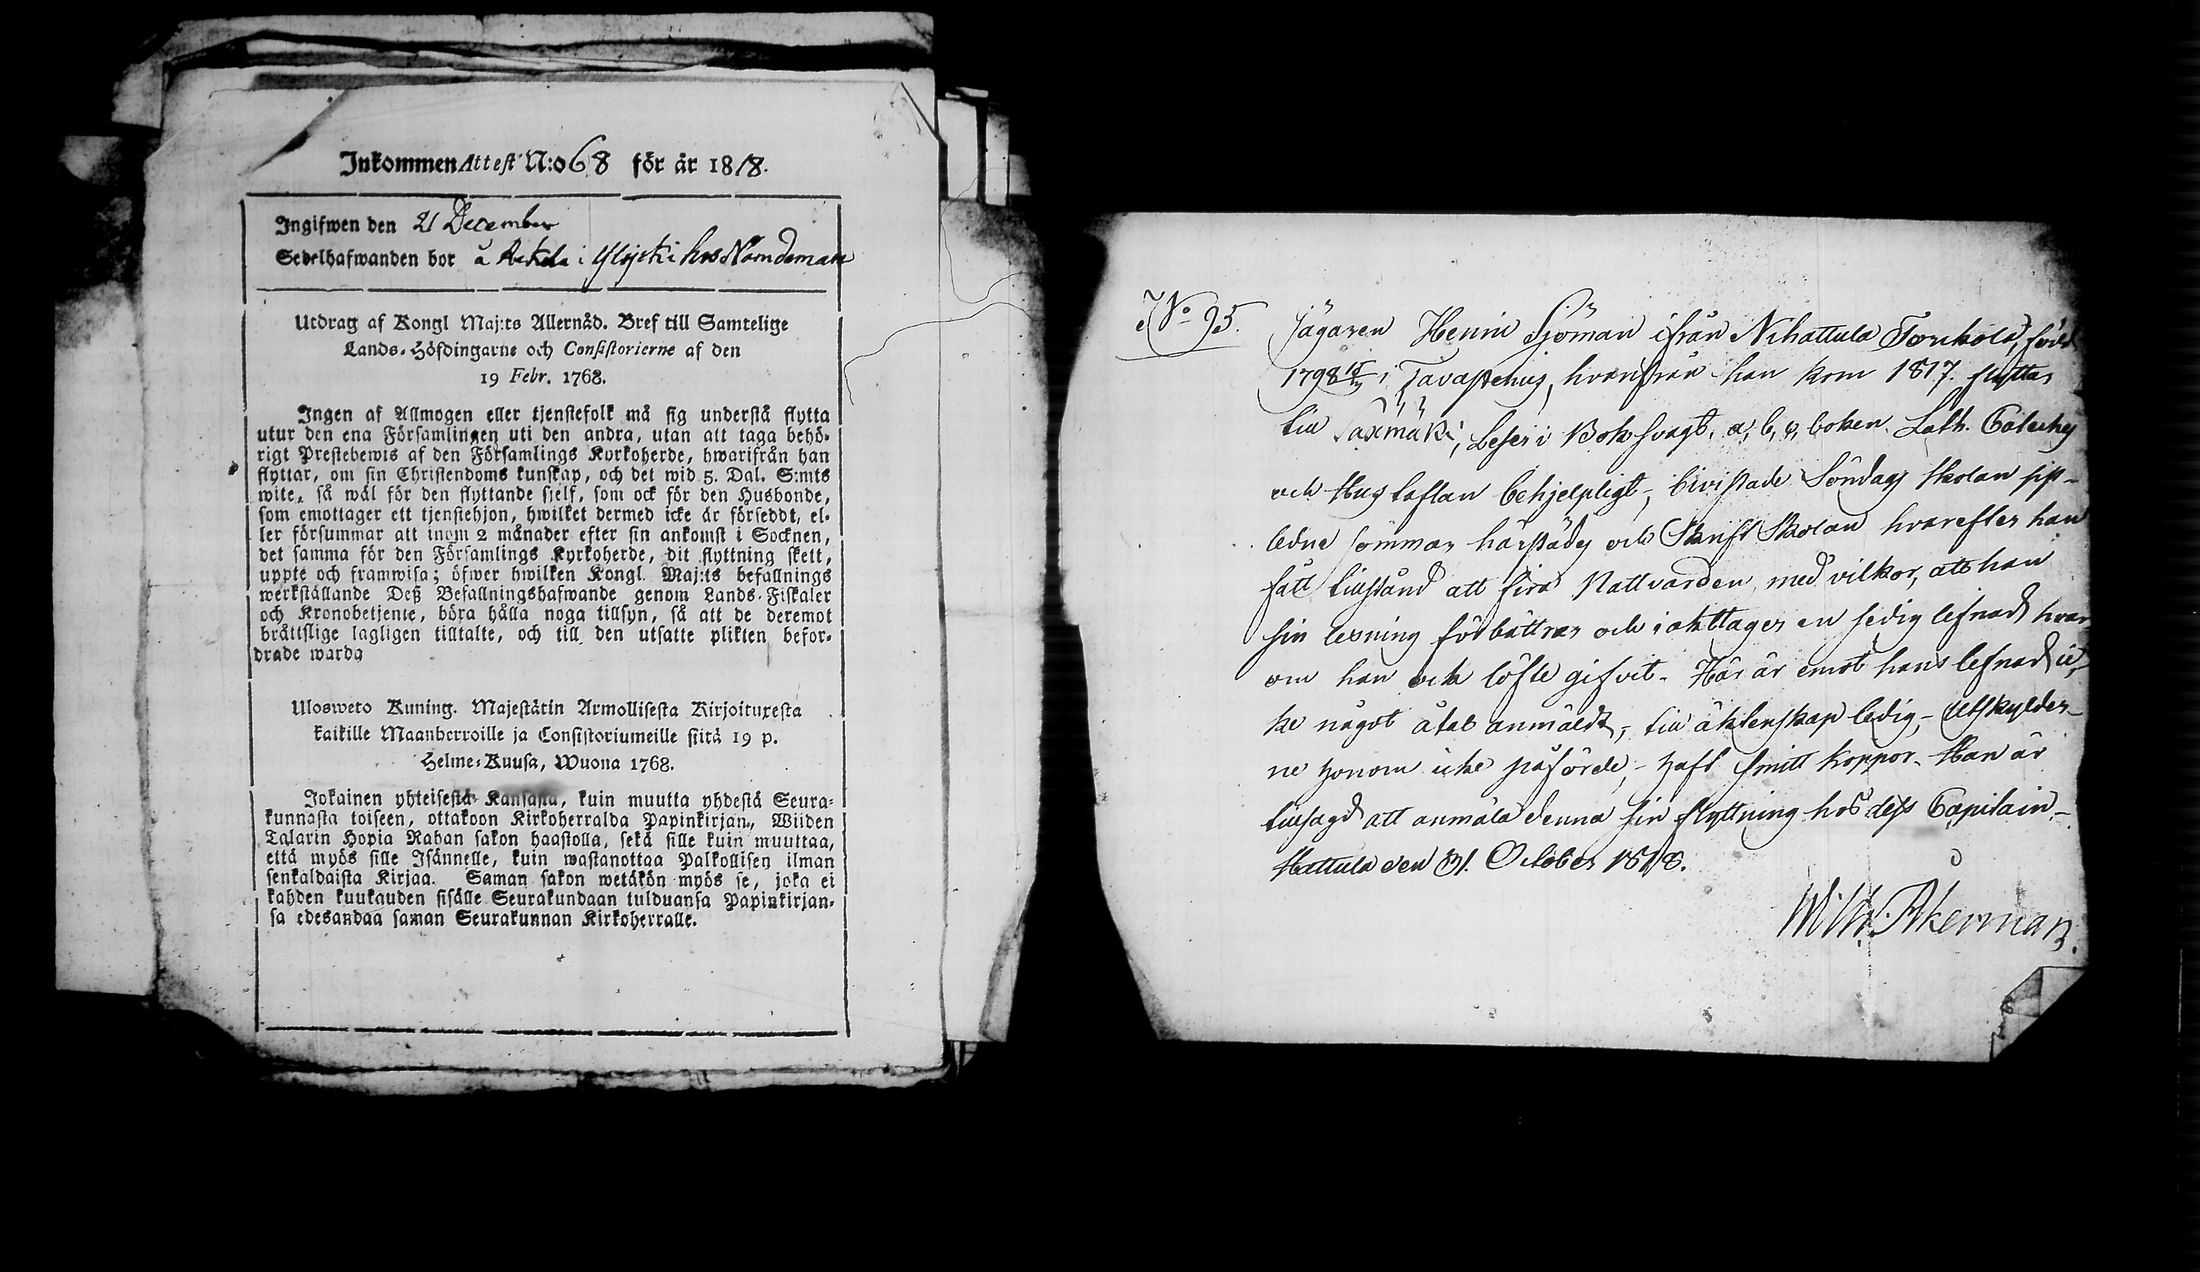 Inkommen Attest N:o 68 för år 1818.
Ingifwen den 21 December
Sedelhafwanden bor å i Ylijoki hos Nämdeman
Utdrag af Kongl Maj:ts Allernåd. Bref till Samtelige
Lands-Höfdingarne och Consistorierne af den
19 Febr. 1768.
Ingen af Allmogen eller tjenstefolk må sig understå flytta
utur den ena Församlingen uti den andra, utan att taga behö-
rigt Prestebewis af den Församlings Kyrkoherde, hwarifrån han
flyttar, om sin Christendoms kunskap, och det wid 5. Dal. S:mts
wite, så wäl för den flyttande sielf, som ock för den Husbonde,
som emottager ett tjenstehjon, hwilket dermed icke är försedt, el-
ler försummar att inom 2 månader efter sin ankomst i Socknen,
det samma för den Församlings Kyrkoherde, dit flyttning skett,
uppte och framwisa; öfwer hwilken Kongl. Maj:ts befallnings
werkställande Deß Befallningshafwande genom Lands-Fiskaler
och Kronobetjente, böra hålla noga tillsyn, så att de deremot
bråttslige lagligen tilltalte, och till den utsatte plikten befor-
drade warda
Ulosweto Kuning. Majestätin Armollisesta Kirjoituxesta
kaikille Maanherroille ja Consistoriumeille siitä 19 p.
Helme-Kuusa, Wuona 1768.
Jokainen yhteisestä Kansasta, kuin muutta yhdestä Seura-
kunnasta toiseen, ottakoon Kirkoherralda Papinkirjan, Wiiden
Talarin Hopia Rahan sakon haastolla, sekä sille kuin muuttaa,
että myös sille Isännelle, kuin wastanottaa Palkollisen ilman
senkaldaista Kirjaa. Saman sakon wetäkön myös se, joka ei
kahden kuukauden sisälle Seurakundaan tulduansa Papinkirjan-
sa edesandaa saman Seurakunnan Kirkoherralle.
No 95. Jägaren Henric Sjöman ifrån Nihattula Torikola, född
1798 i Tavastehus, hvarifrån han kom 1817. flyttar
till Saxmäki, Leser i Bok svagt, a, b, c, boken Luth. Cateches
och Hustaflan behjelpligt, bivistade Söndags skolan sist-
ledne sommar härstädes och Skrift Skolan hvarefter han
fått tillstånd att fira Nattvarden, med vilkor, att han
sin lesning förbättrar och iakttager en sedig lefnad hvar
om han ock löfte gifvit. Här är emot hans lefnad ic-
ke något åtal anmäldt, till äktenskap ledig, Utskylder-
ne honom icke påförde, haft smitt koppor. Han är
tillsagd att anmäla denna sin flyttning hos dess Capitain.
Hattula den 31. October 1818.
Wilh. Åkerman.